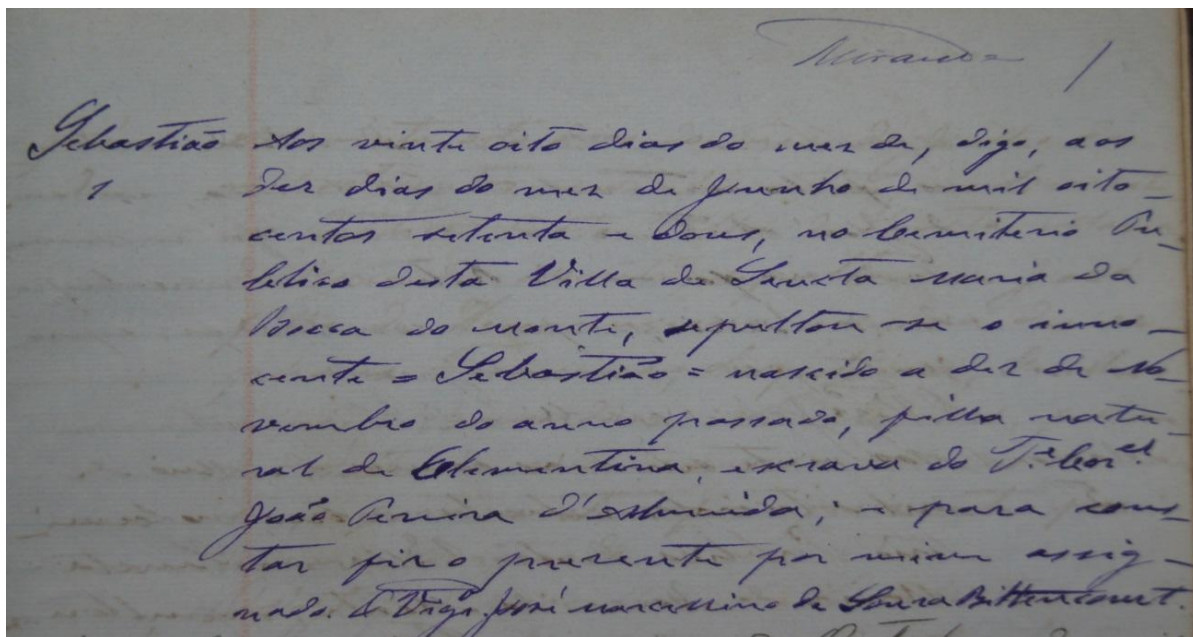 Miranda 1
Sebastião Aos vinte oito dias do mez de, digo, aos
1 dez dias do mez de Junho de mil oito-
centos setenta e dous, no Cemiterio Pu-
blico desta Villa de Sancta Maria da
Bocca do Monte, sepultou-se o inno-
cente = Sebastião = nascido a dez de No-
vembro do anno passado, filho natu-
ral de Clementina, escrava do Te. Corel.
João Pereira d'Almeida; e para cons-
tar fiz o presente por mim assig-
nado. O Vigo. José Marcellino de Souza Bittencourt.